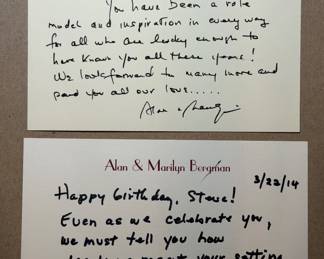 You have been a role
model and inspiration in every way
for all who are lucky enough to
have known you all these years!
We look forward to many more and
send you all our love.....
Alan &
Alan & Marilyn Bergman
3/22/14
Happy birthday, Steve!
Even as we celebrate you,
we must tell you how
your setting